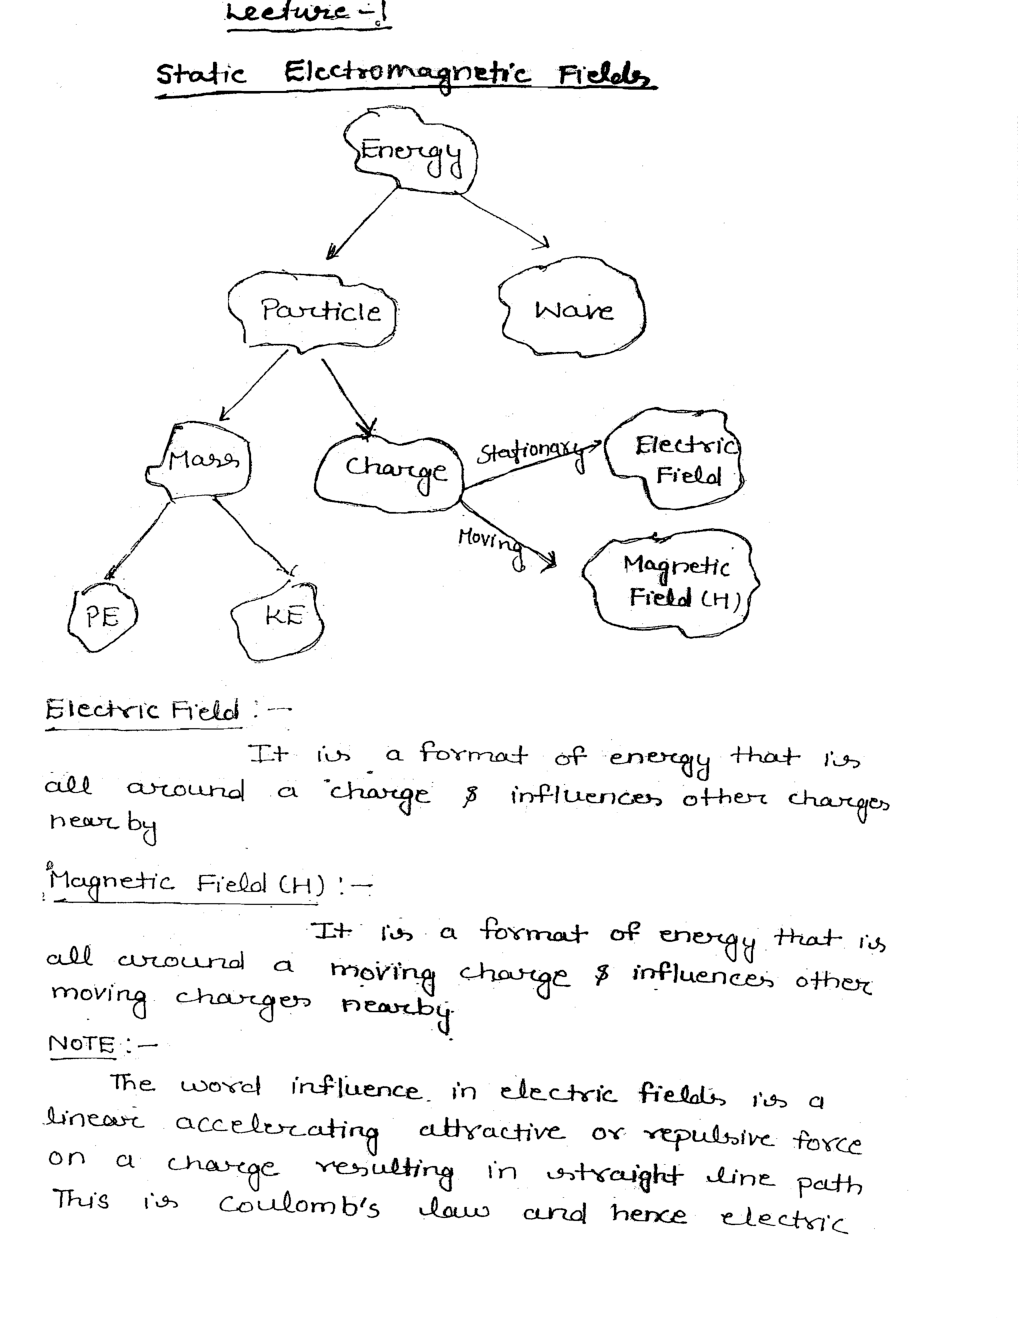 Lecture-1
Static Electromagnetic Fields
Energy
Particle
Wave
Mass
Charge
Stationary
Electric
Field
Moving
Magnetic
Field (H)
PE
KE
Electric Field :-
It is a format of energy that is
all around a charge & influences other charges
near by
Magnetic Field (H) :-
It is a format of energy that is
all around a moving charge & influences other
moving charges nearby.
NOTE :-
The word influence in electric fields is a
linear accelerating attractive or repulsive force
on a charge resulting in straight line path
This is Coulomb's law and hence electric